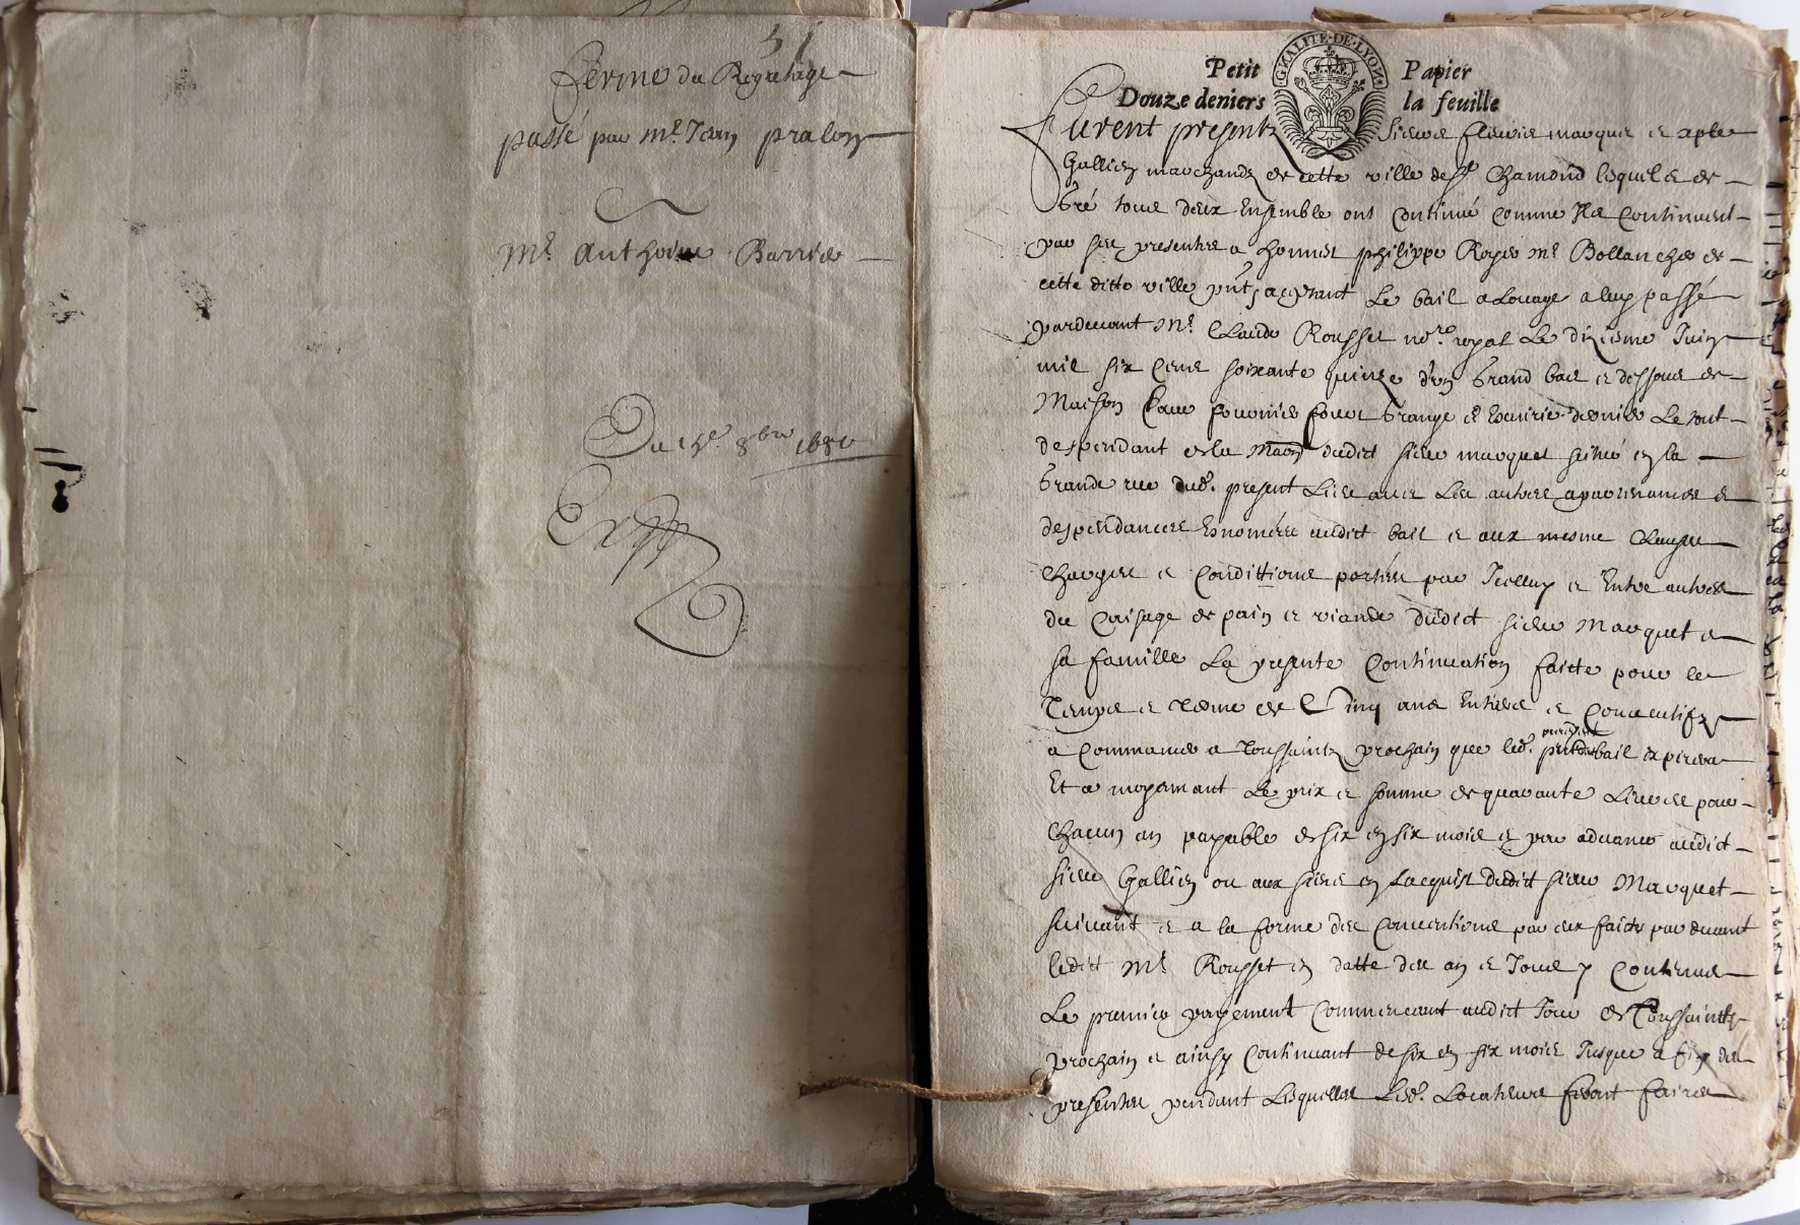 51
ferme du Reguelage
passé par me. Jean pralong
Mr. Anthoine Barrie
Du 15e. 8bre 1680
Exp
GNALITE·DE·LYON
Petit Papier
Douze deniers la feuille
furent presents sieurs fleurie marquet et
Gallien marchands de cette ville de St Chamond lesquels de
Gré tous deux Ensemble ont Continué comme Ils Continuent
par ses presentes a honnest philippe Royer me Bollancher de
cette ditte ville pnt, acceptant Le bail a Louage a luy passé
pardeuant Me. Claude Rousset nore. royal Le dixiesme Juin
mil six cens soixante quinze d'un Grand bas et dessous de
Maison Caue fournier four Grange et Escuirie dernier Le tout
despendant de la Maon dudict sieur marquet scitué en la
Grande rue dud. present Lieu auec Les autres apartenances et
despendances Esnomées audict bail et aux mesme Clauses
Charges et Condittions portées par Icelluy et Entre autres
du Cuisage de pain et viande dudict sieur Marquet et
sa famille La presente Continuation faicte pour le
Temps et terme de Cinq ans Entiers et Consecutifs
a Commancer a Toussaints prochain que led. bail expirera
Et a moyennant Le prix et somme de quarante Liures pour
Chacun an payable de six en six mois et par aduance audict
sieur Gallien ou aux siens en Lacquist dudict sieur Marquet
suiuant et a la forme des Conuentions par eux faicts par deuant
ledict Me Rousset en datte des an et Jour y Contenus
Le premier payement Commenceant audict Jour de Toussaintz
prochain et ainsy Continuant de six en six mois Jusques a fin des
presentes pendant Lesquelles Lesd. Locateurs feront faire